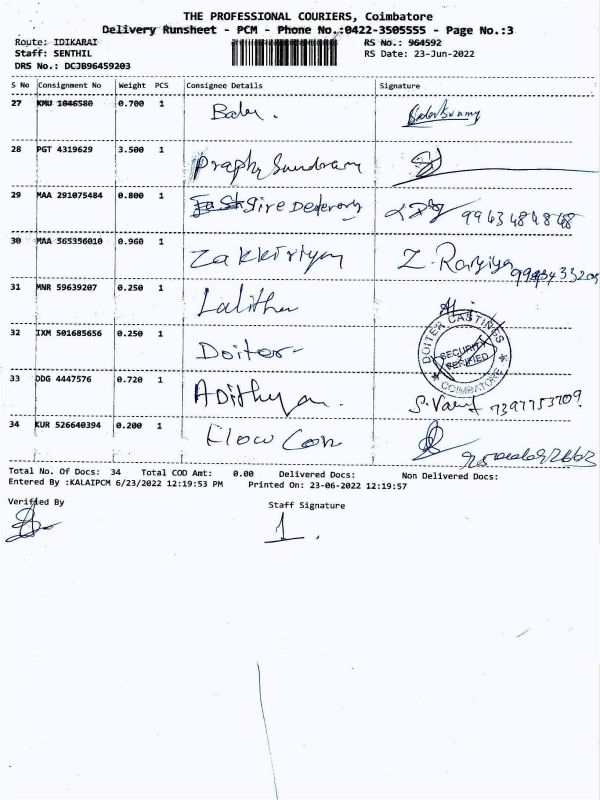 THE PROFESSIONAL COURIERS, Coimbatore
Delivery Runsheet - PCM - Phone No.:0422-3505555 - Page No.:3
Route: IDIKARAI RS No.: 964592
Staff: SENTHIL RS Date: 23-Jun-2022
DRS No.: DCJB96459203
S No Consignment No Weight PCS Consignee Details Signature
27 KMU 1046580 0.700 1 Balu.
28 PGT 4319629 3.500 1 Sundram
29 MAA 291075484 0.800 1
30 MAA 565356010 0.960 1 Zakkiriya Z.
31 MNR 59639207 0.250 1 Lalitha
32 IXM 501685656 0.250 1 Doiter
DOITER CASTINGS
SECURITY
VERIFIED
COIMBATORE
33 DDG 4447576 0.720 1 Adithyan. 7397753709.
34 KUR 526640394 0.200 1 Flow Con
Total No. Of Docs: 34 Total COD Amt: 0.00 Delivered Docs: Non Delivered Docs:
Entered By :KALAIPCM 6/23/2022 12:19:53 PM Printed On: 23-06-2022 12:19:57
Verified By Staff Signature